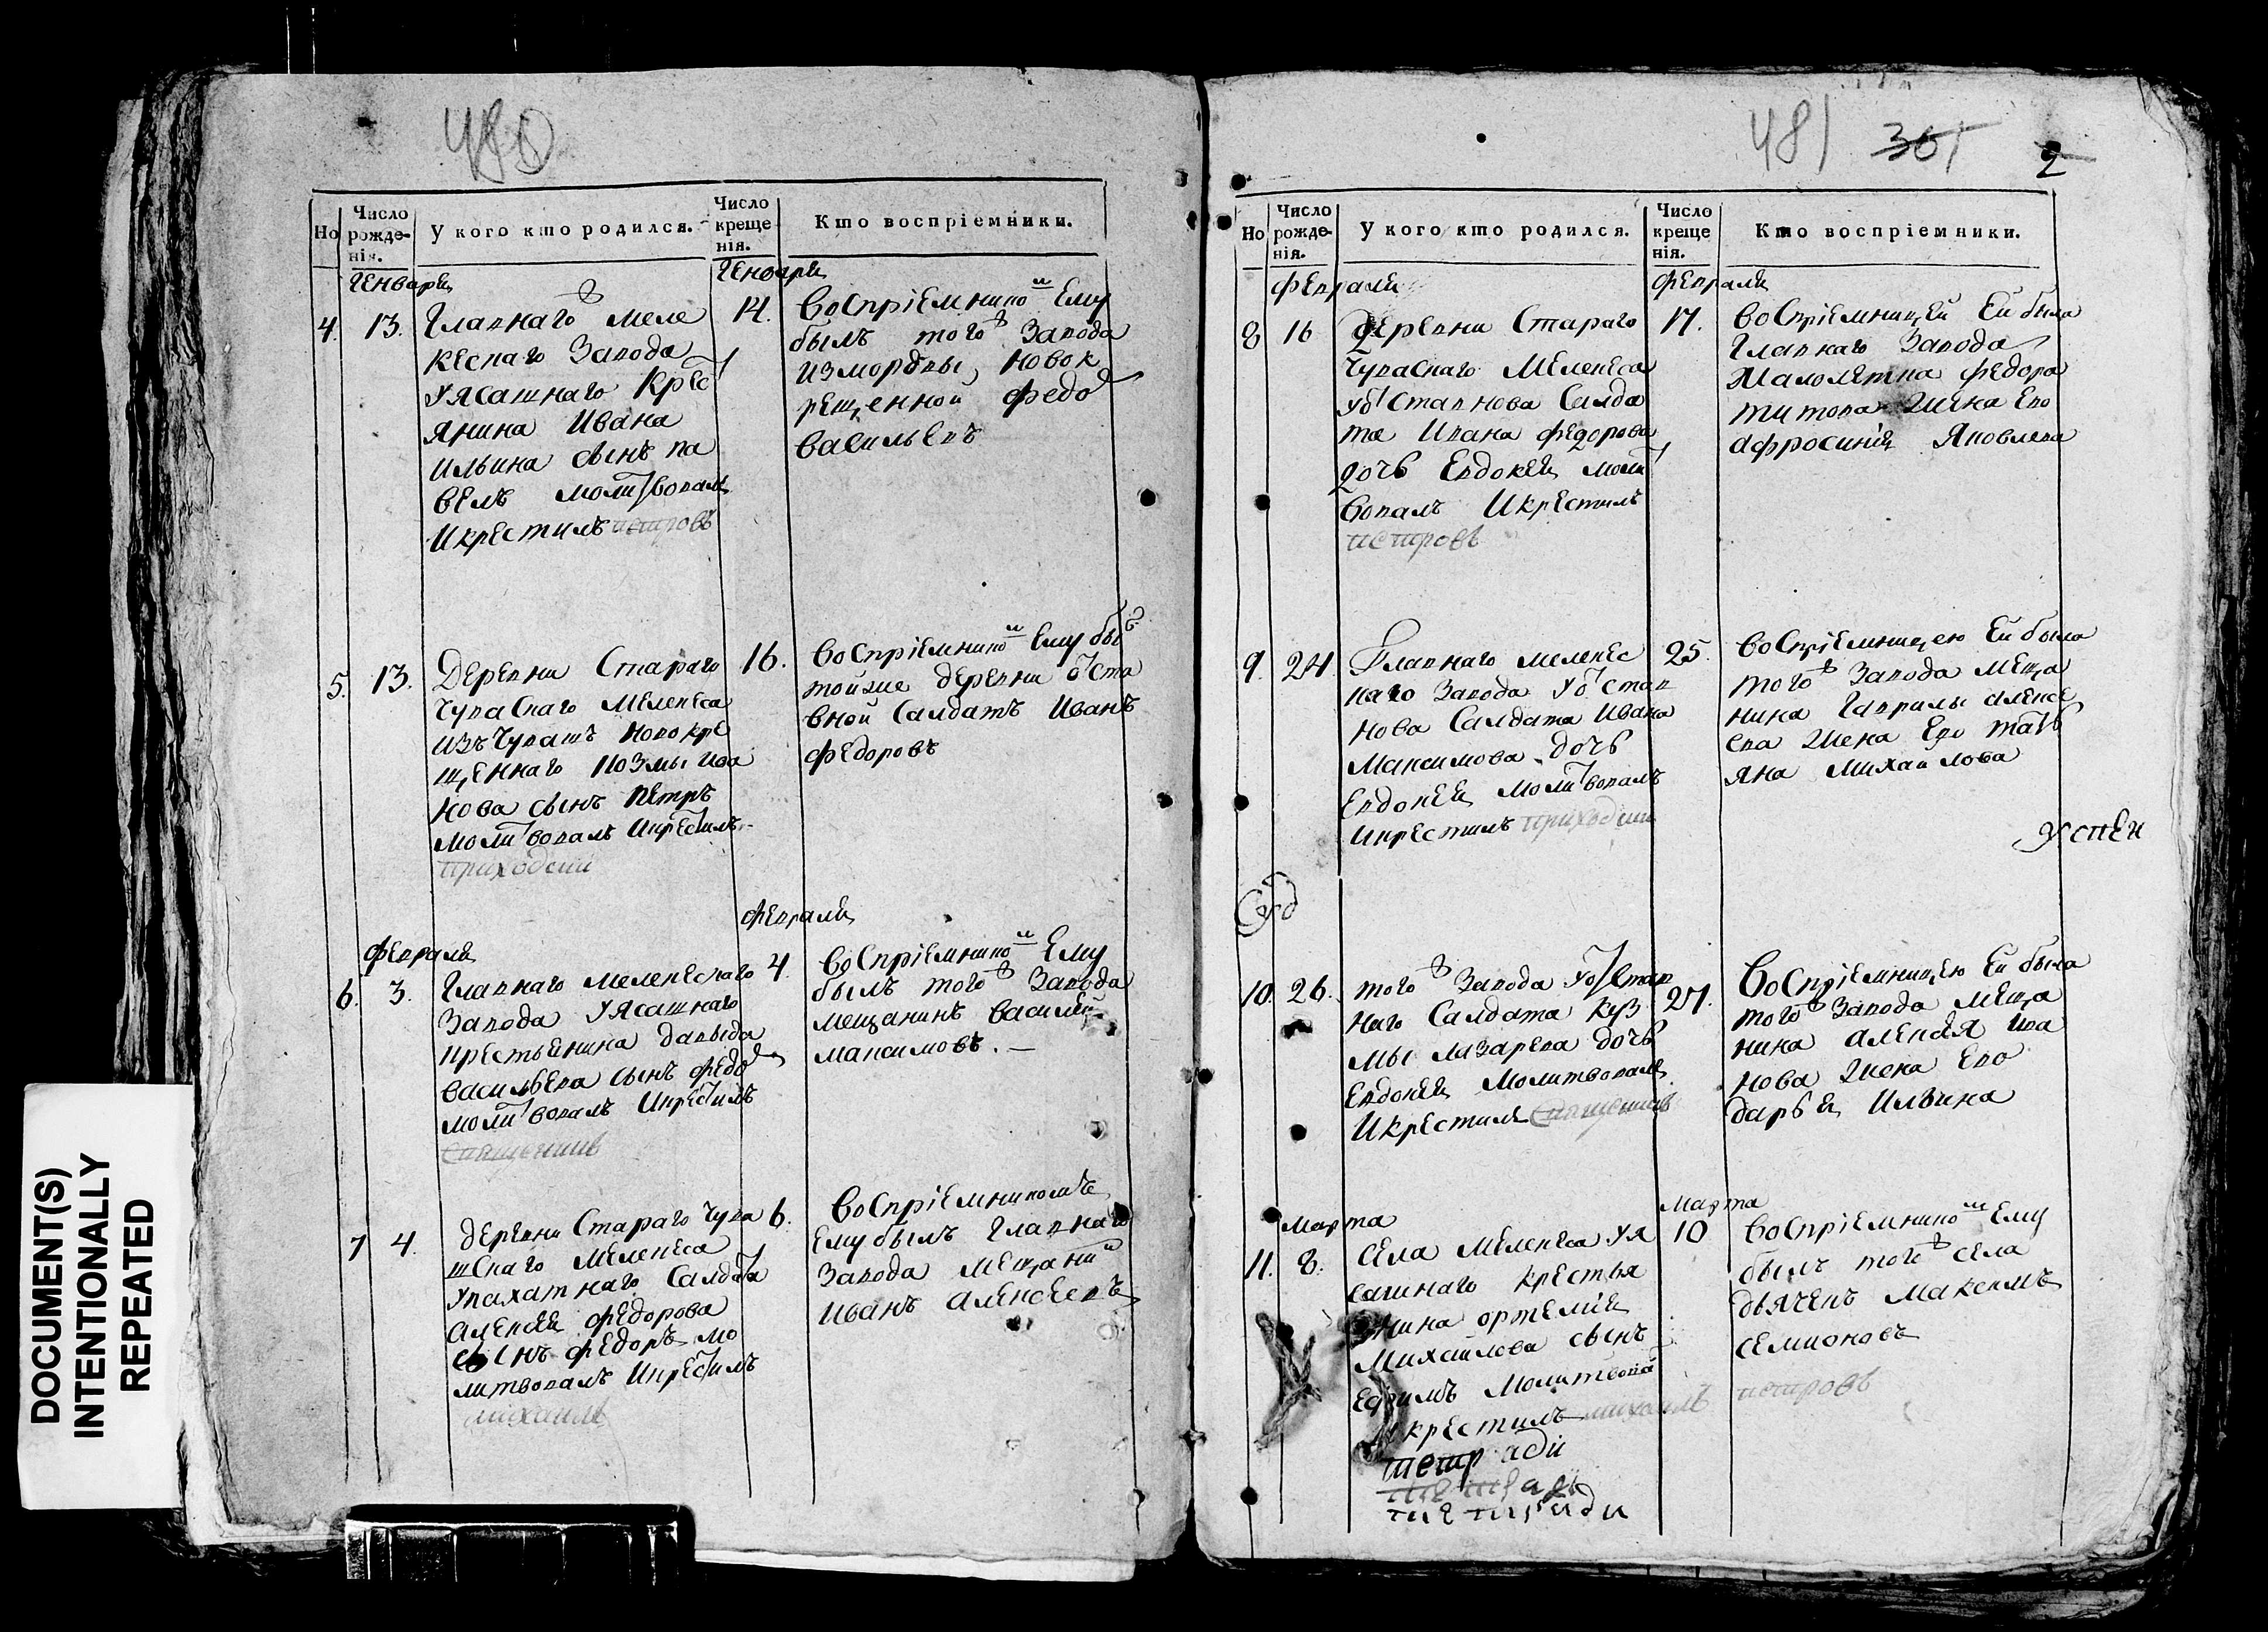 480
Но
Число рожде- нія.
У кого кто родился.
Число креще нія.
Кто воспріемники.
Генваря
Генваря
4. 13. Главнаго Меле
кескаго Завода
У Ясашнаго Крес
янина Ивана
Ильина сынъ па
велъ молитвовалъ
Икрестилъ петровъ
14. Воспріемнико Ему
былъ того Завода
Измордвы новок
рещенной Федо
Васильевъ
5. 13. Деревни Стараго
Чувасkаго Мелекеса
Изъ Чувашъ Новокре
щеннаго Козмы Ива
нова сынъ Петръ
Молитвовалъ Икрестилъ
приходскій
16. Воспріемнико Ему бы
тойже деревни отста
вной Салдатъ Иванъ
Федоровъ
Февраля
Февраля
6. 3. Главнаго Мелекескаго
Завода У Ясашнаго
крестьянина Давыда
Васильева сынъ Федо
молитвовалъ Икрестилъ
Священникъ
4. Воспріемнико Ему
былъ того Завода
мещанинъ Василей
максимовъ.
7 4. Деревни Стараго Чува
шскаго Мелекеса
Упахатнаго Салдата
Алексея Федорова
сынъ Федоръ мо
литвовалъ Икрестилъ
михаилъ
6. Воспріемникомъ
Ему былъ Главнаго
Завода Мещани
Иванъ Алексеевъ
481 361 2
Но
Число рожде- нія.
У кого кто родился.
Число креще нія.
Кто воспріемники.
Февраля
Февраля
8 16 Деревни Стараго
Чуваскаго Мелекеса
У отставнова Салда
та Ивана Федорова
дочь Евдокея молит
вовалъ Икрестилъ
петровъ
17. Воспріемницей Ей была
Главнаго Завода
Малолетка Федора
титова Жена Ево
Афросинія Яковлева
9. 24. Главнаго мелекес
каго Завода У отстав
нова Салдата Ивана
Максимова дочь
Евдокея молитвовалъ
Икрестилъ приходскій
25. Воспріемницею Ей была
того Завода Меща
нина Гаврилы Алексе
ева Жена Ево Тать
яна Михайлова
Успен
10. 26. того Завода У отстав
наго Салдата Куз
мы Лазарева дочь
Евдокея Молитвовалъ
Икрестилъ Священникъ
27. Воспріемницею Ей была
того Завода Меща
нина Алексея Ива
нова Жена Ево
дарья Ильина
Марта
Марта
11. 8. Села Мелекеса У Я
сашнаго крестья
янина Ортемія
Михайлова сынъ
Ефимъ Молитвова
Икрестилъ михаилъ петровъ
10 Воспріемнико Ему
былъ того села
дьячекъ Максимъ
Семионовъ
тетради
тетради
тетради
DOCUMENT(S)
INTENTIONALLY
REPEATED